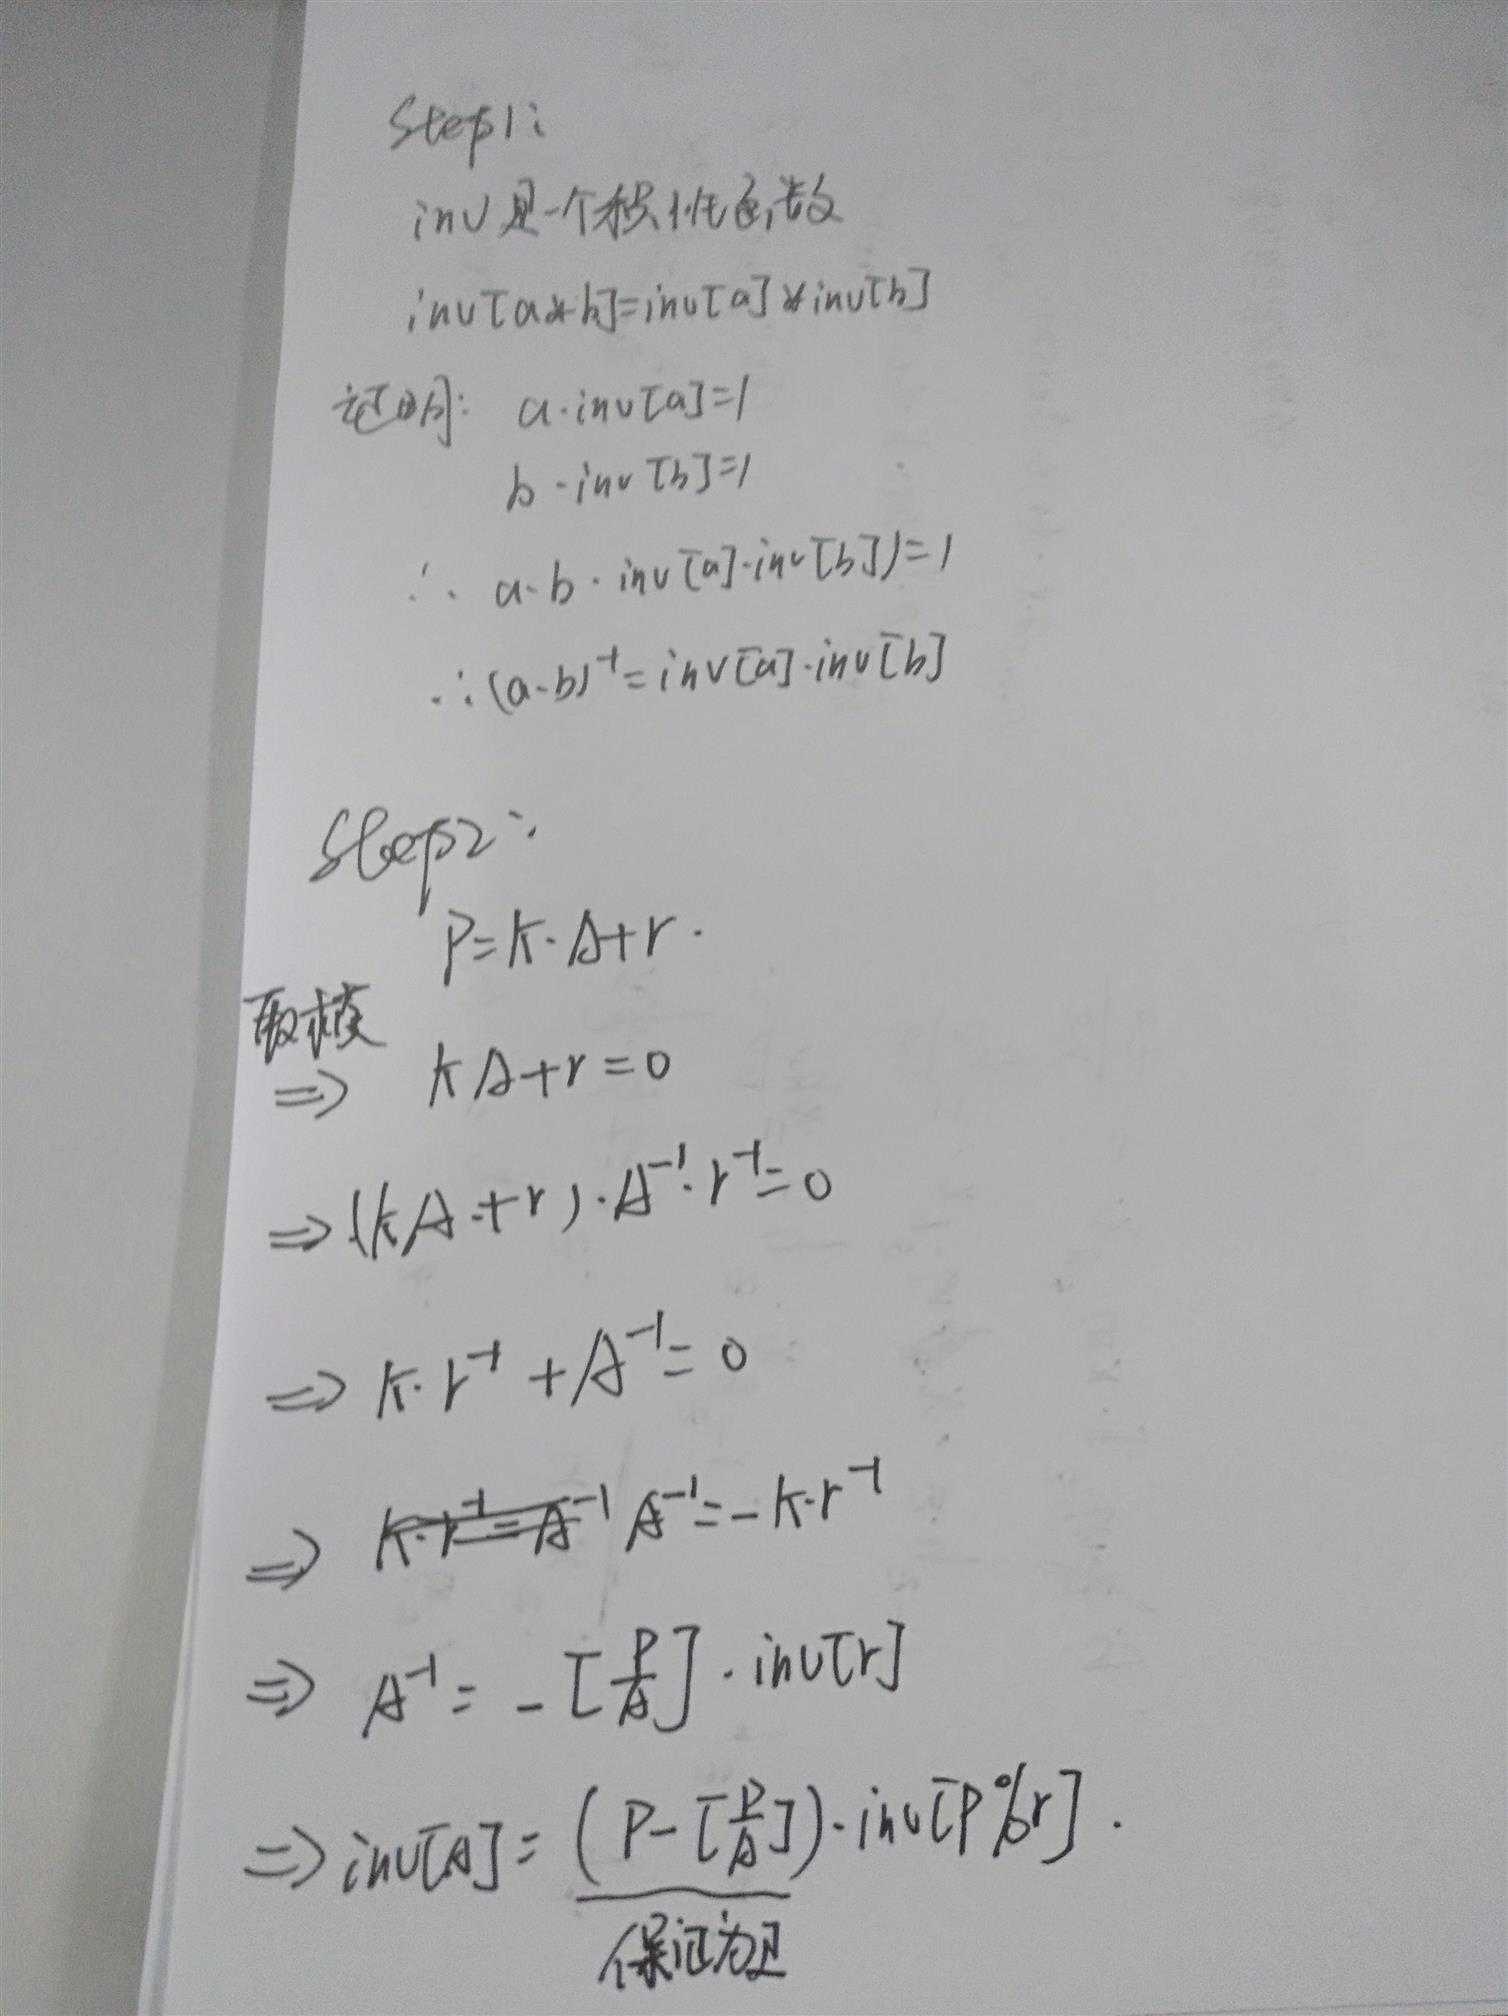 Step1:
inv是一个积性函数
inv[a*b]=inv[a]*inv[b]
证明: a·inv[a]=1
b·inv[b]=1
∴ a·b·inv[a]·inv[b])=1
∴(a·b)⁻¹=inv[a]·inv[b]
Step2:
P=K·A+r.
取模
⇒ KA+r=0
⇒(KA+r)·A⁻¹·r⁻¹=0
⇒ K·r⁻¹+A⁻¹=0
⇒ K·r⁻¹=A⁻¹ A⁻¹=-K·r⁻¹
⇒ A⁻¹=-[P/A]·inv[r]
⇒inv[A]=(P-[P/A])·inv[P%r].
保证为正